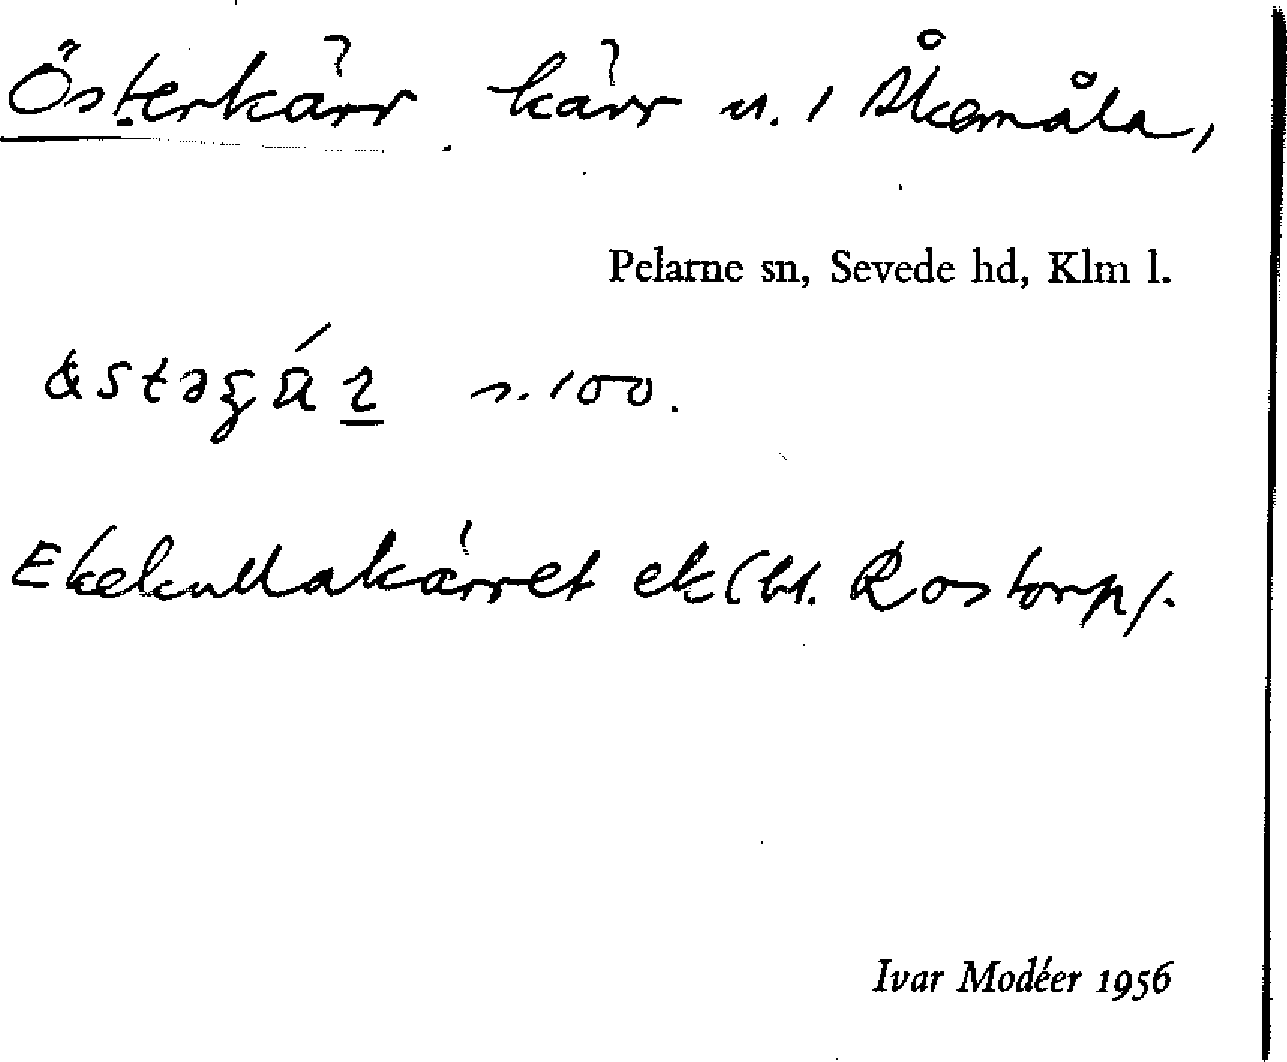 Österkärr kärr u. / Åkemåla,
Pelarne sn, Sevede hd, Klm l.
s. 100.
Ekekullakärret ek (bl. Rostorp).
Ivar Modéer 1956